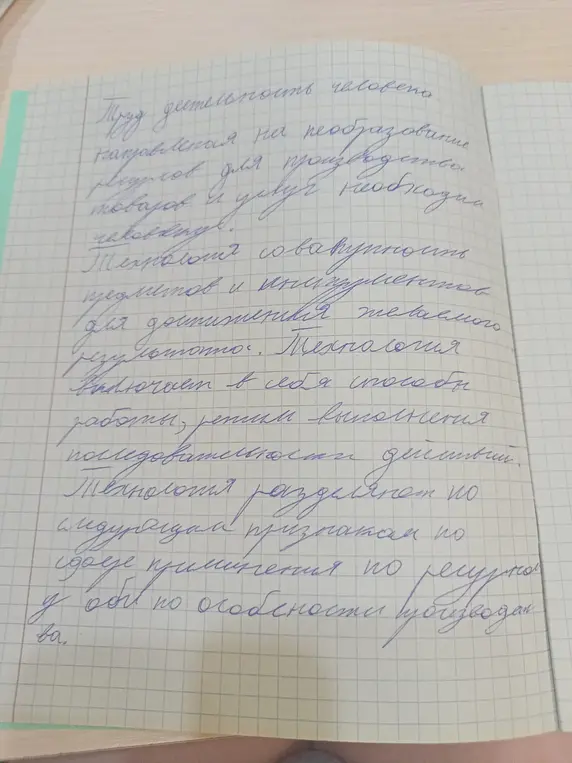 Труд деятельность человека
направления на необразование
ресурсов для производства
товаров и услуг необходим
человеку.
Технология совакупность
предметов и инструментов
для достижения жевамого
результата. Технология
включает в себя способы
работы, режим выполнения
последовательности действий.
Технология разделяют по
следующим признакам по
сфере применения по ресурсно
у по особености производст
ва.